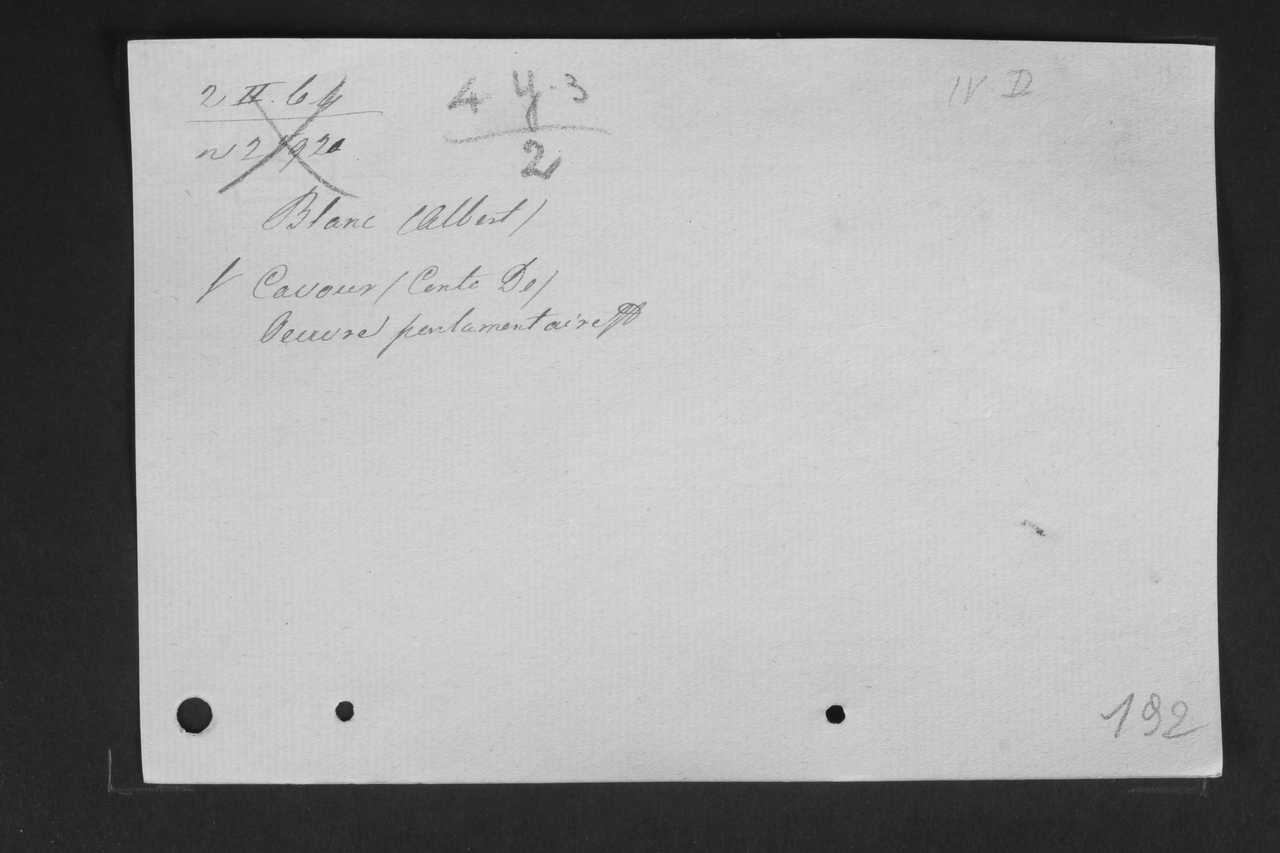 2 II. 64
n 2 1920
4 y. 3
2
IV D
Blanc (Albert)
V Cavour (Conte De)
Oeuvre parlamentaire
192